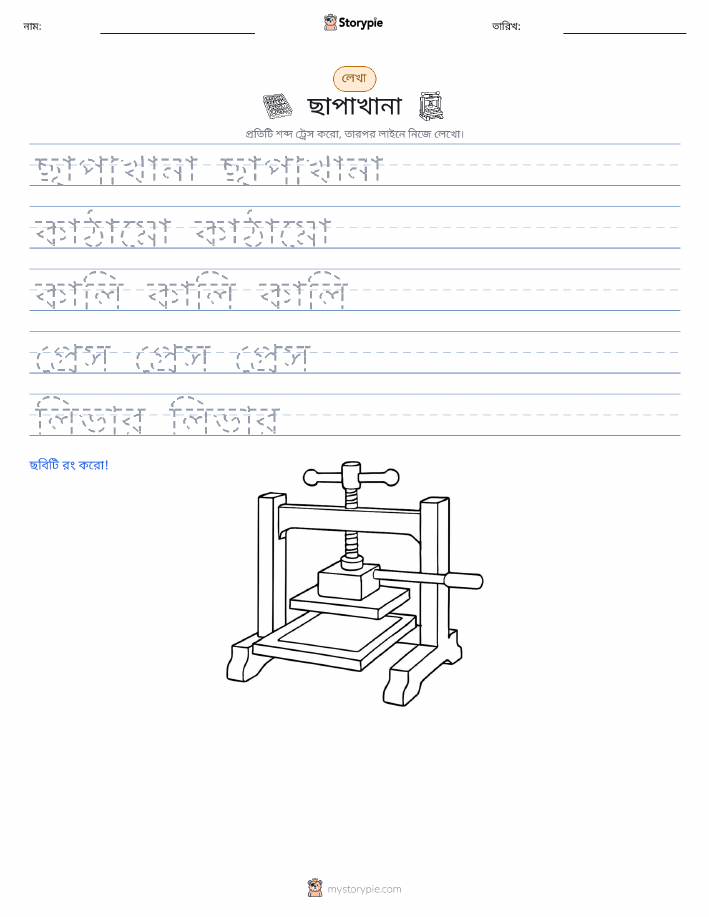 নাম:
Storypie
তারিখ:
লেখা
ছাপাখানা
প্রতিটি শব্দ ট্রেস করো, তারপর লাইনে নিজে লেখো।
ছাপাখানা ছাপাখানা
কাঠামো কাঠামো
কালি কালি কালি
প্রেস প্রেস প্রেস
লিভার লিভার
ছবিটি রং করো!
mystorypie.com